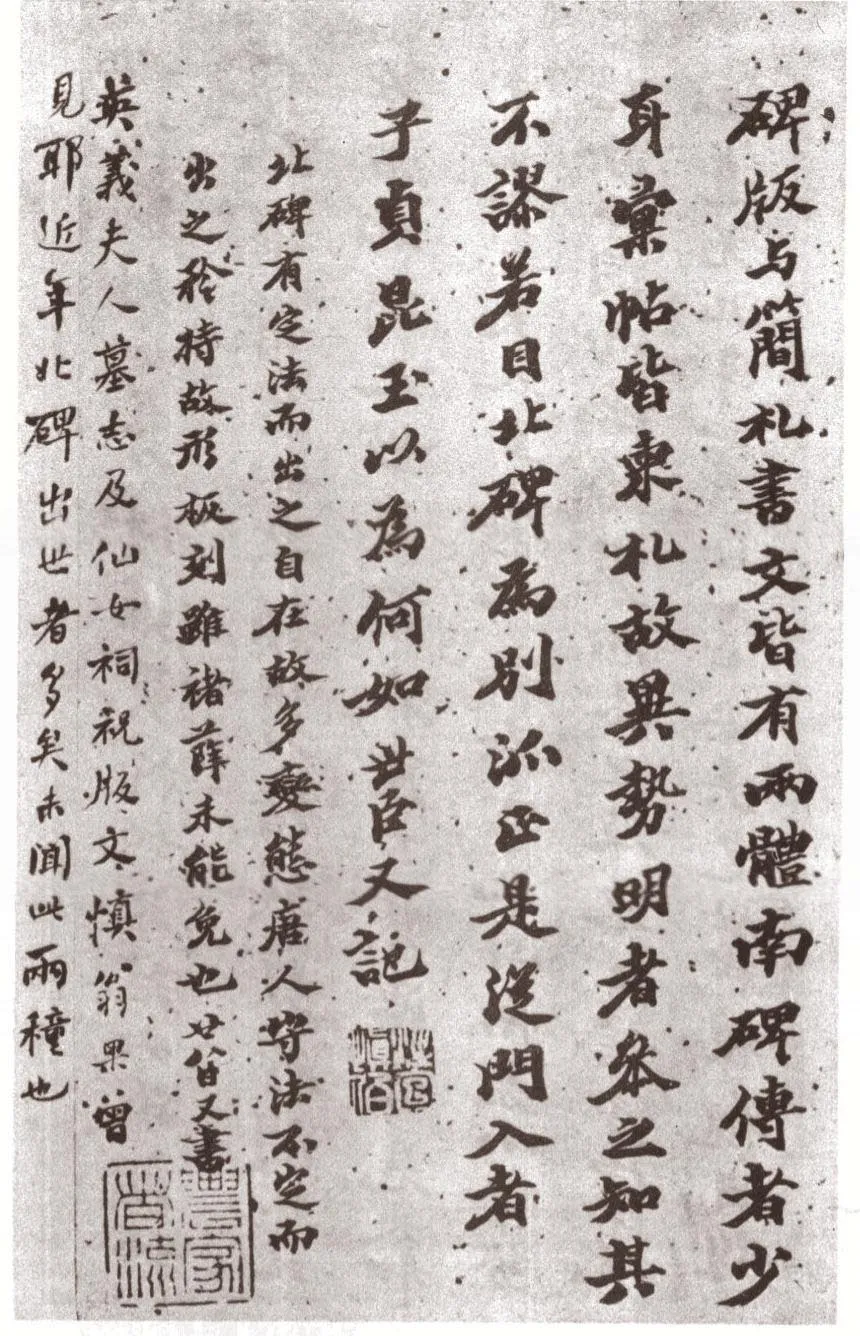 碑版与簡札書文皆有兩體南碑傳者少
身彙帖皆柬札故異勢明者叅之知其
不謬若目北碑為別派正是從門入者
子貞昆玉以為何如世臣又記
北碑有定法而出之自在故多變態唐人守法不定而
出之矜持故形板刻雖褚薛未能免也廿八日又書
英義夫人墓志及仙女祠祝版文慎翁果曾
見耶近年北碑出世者多矣未聞此兩種也